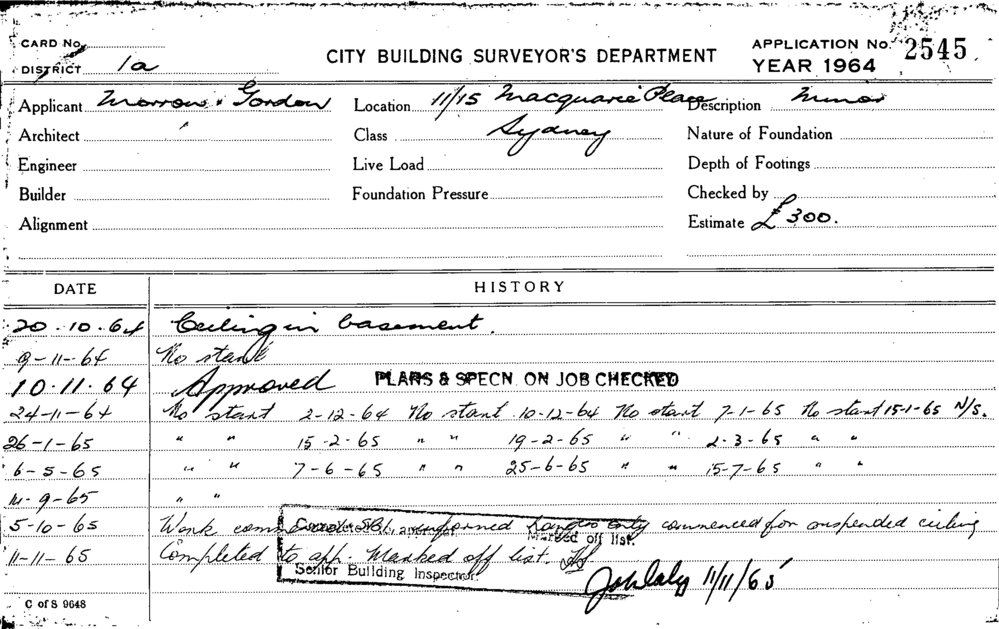 CARD No.
DISTRICT 1a
CITY BUILDING SURVEYOR'S DEPARTMENT
APPLICATION No. 2545
YEAR 1964
Applicant Morrow & Gordon Location 11/15 Macquarie Place Description Minor
Architect Class Sydney Nature of Foundation
Engineer Live Load Depth of Footings
Builder Foundation Pressure Checked by
Alignment Estimate £300.
DATE HISTORY
20.10.64 Ceiling in basement.
9-11-64 No start
10.11.64 Approved PLANS & SPECN. ON JOB CHECKED
24-11-64 No start 2-12-64 No start 10-12-64 No start 7-1-65 No start 15-1-65 N/S.
26-1-65 " " 15-2-65 " " 19-2-65 " " 2-3-65 " "
6-5-65 " " 7-6-65 " " 25-6-65 " " 15-7-65 " "
14-9-65 " "
5-10-65 Work informed only commenced for suspended ceiling
Marked off list.
11-11-65 Completed to app. Marked off list.
Senior Building Inspector.
11/11/65
C of S 9648